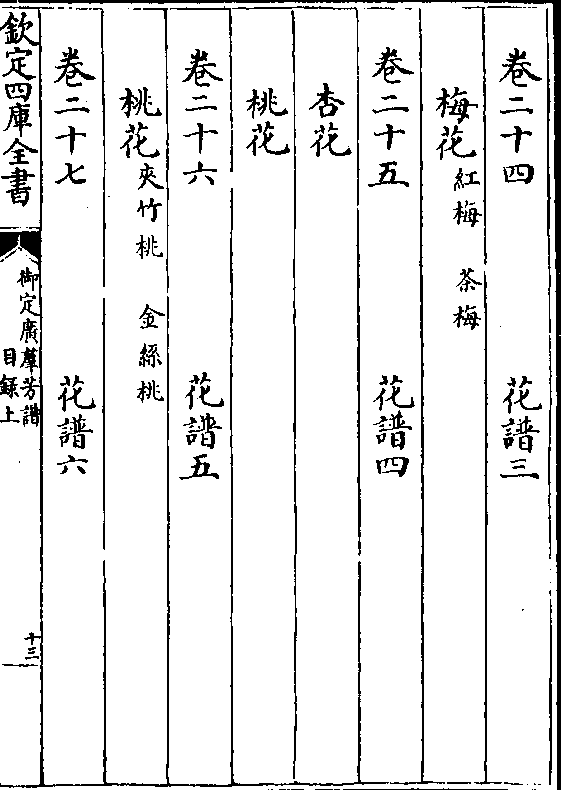 卷二十四 花譜三
梅花 紅梅 茶梅
卷二十五 花譜四
杏花
桃花
卷二十六 花譜五
桃花 夾竹桃 金絲桃
卷二十七 花譜六
欽定四庫全書
御定廣羣芳譜
目録上
十三